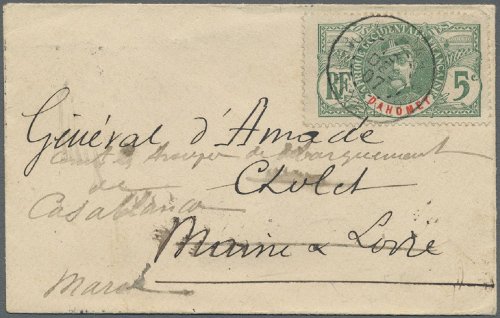 AFRIQUE OCCIDENTALE FRANÇAISE
RF 5c
DAHOMEY
07
Général d'Amade
Comt les troupes de débarquement
de Cholet
Casablanca
Maine & Loire
Maroc